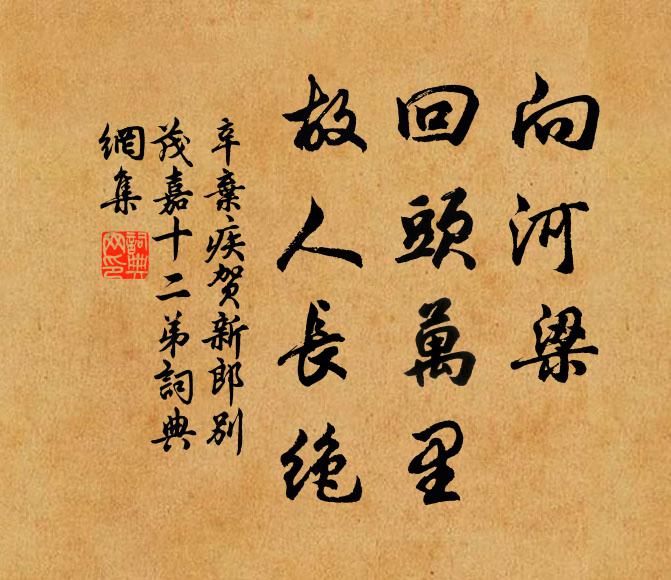 向河梁
回頭萬里
故人長絶
辛棄疾賀新郎別
茂嘉十二弟詞典
網集
詞典
网印